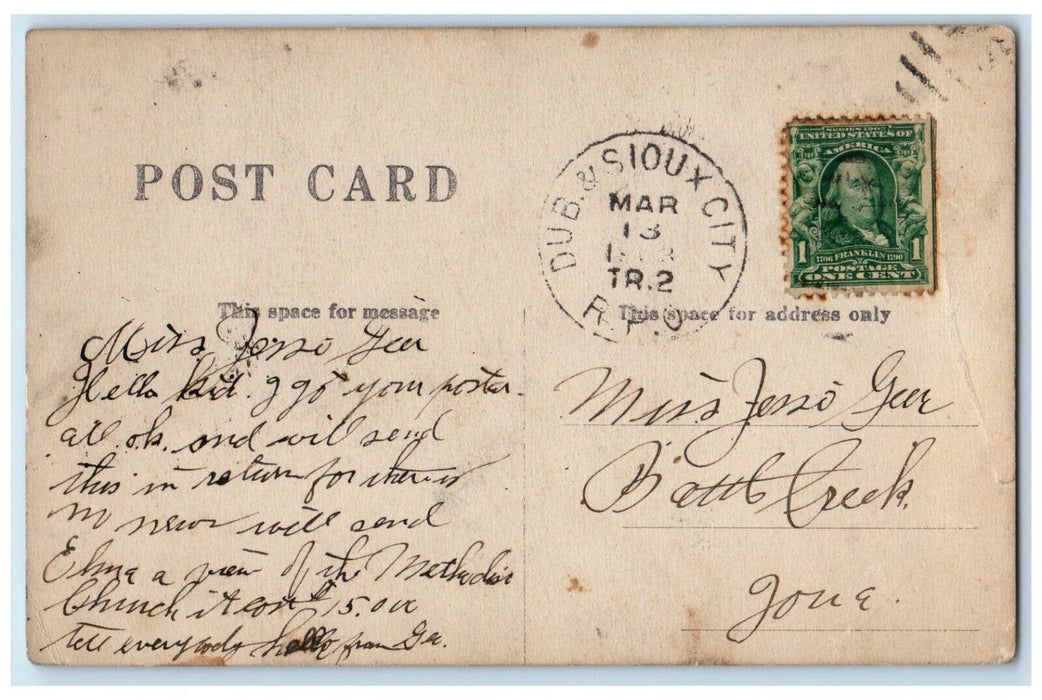 POST CARD
DUB. & SIOUX CITY
MAR
13
TR.2
R.P.O.
SERIES 1902
UNITED STATES OF
AMERICA
1 1
1706 FRANKLIN 1790
POSTAGE
ONE CENT
This space for message
This space for address only
Miss Jessi Geer
Hello kid. I got your postar.
all. ok. and will send
this in return for there is
no news will send
Elma a view of the Methodis
Church it cost 15.00
tell everybody hello from Ga.
Miss Jessi Geer
Battle Creek.
Iowa.